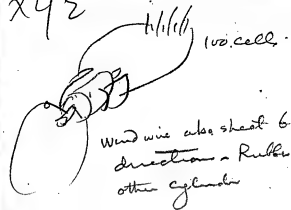 x y z
100 cells.
Wind wire also sheet 6
directions - Rubber
other cylinder